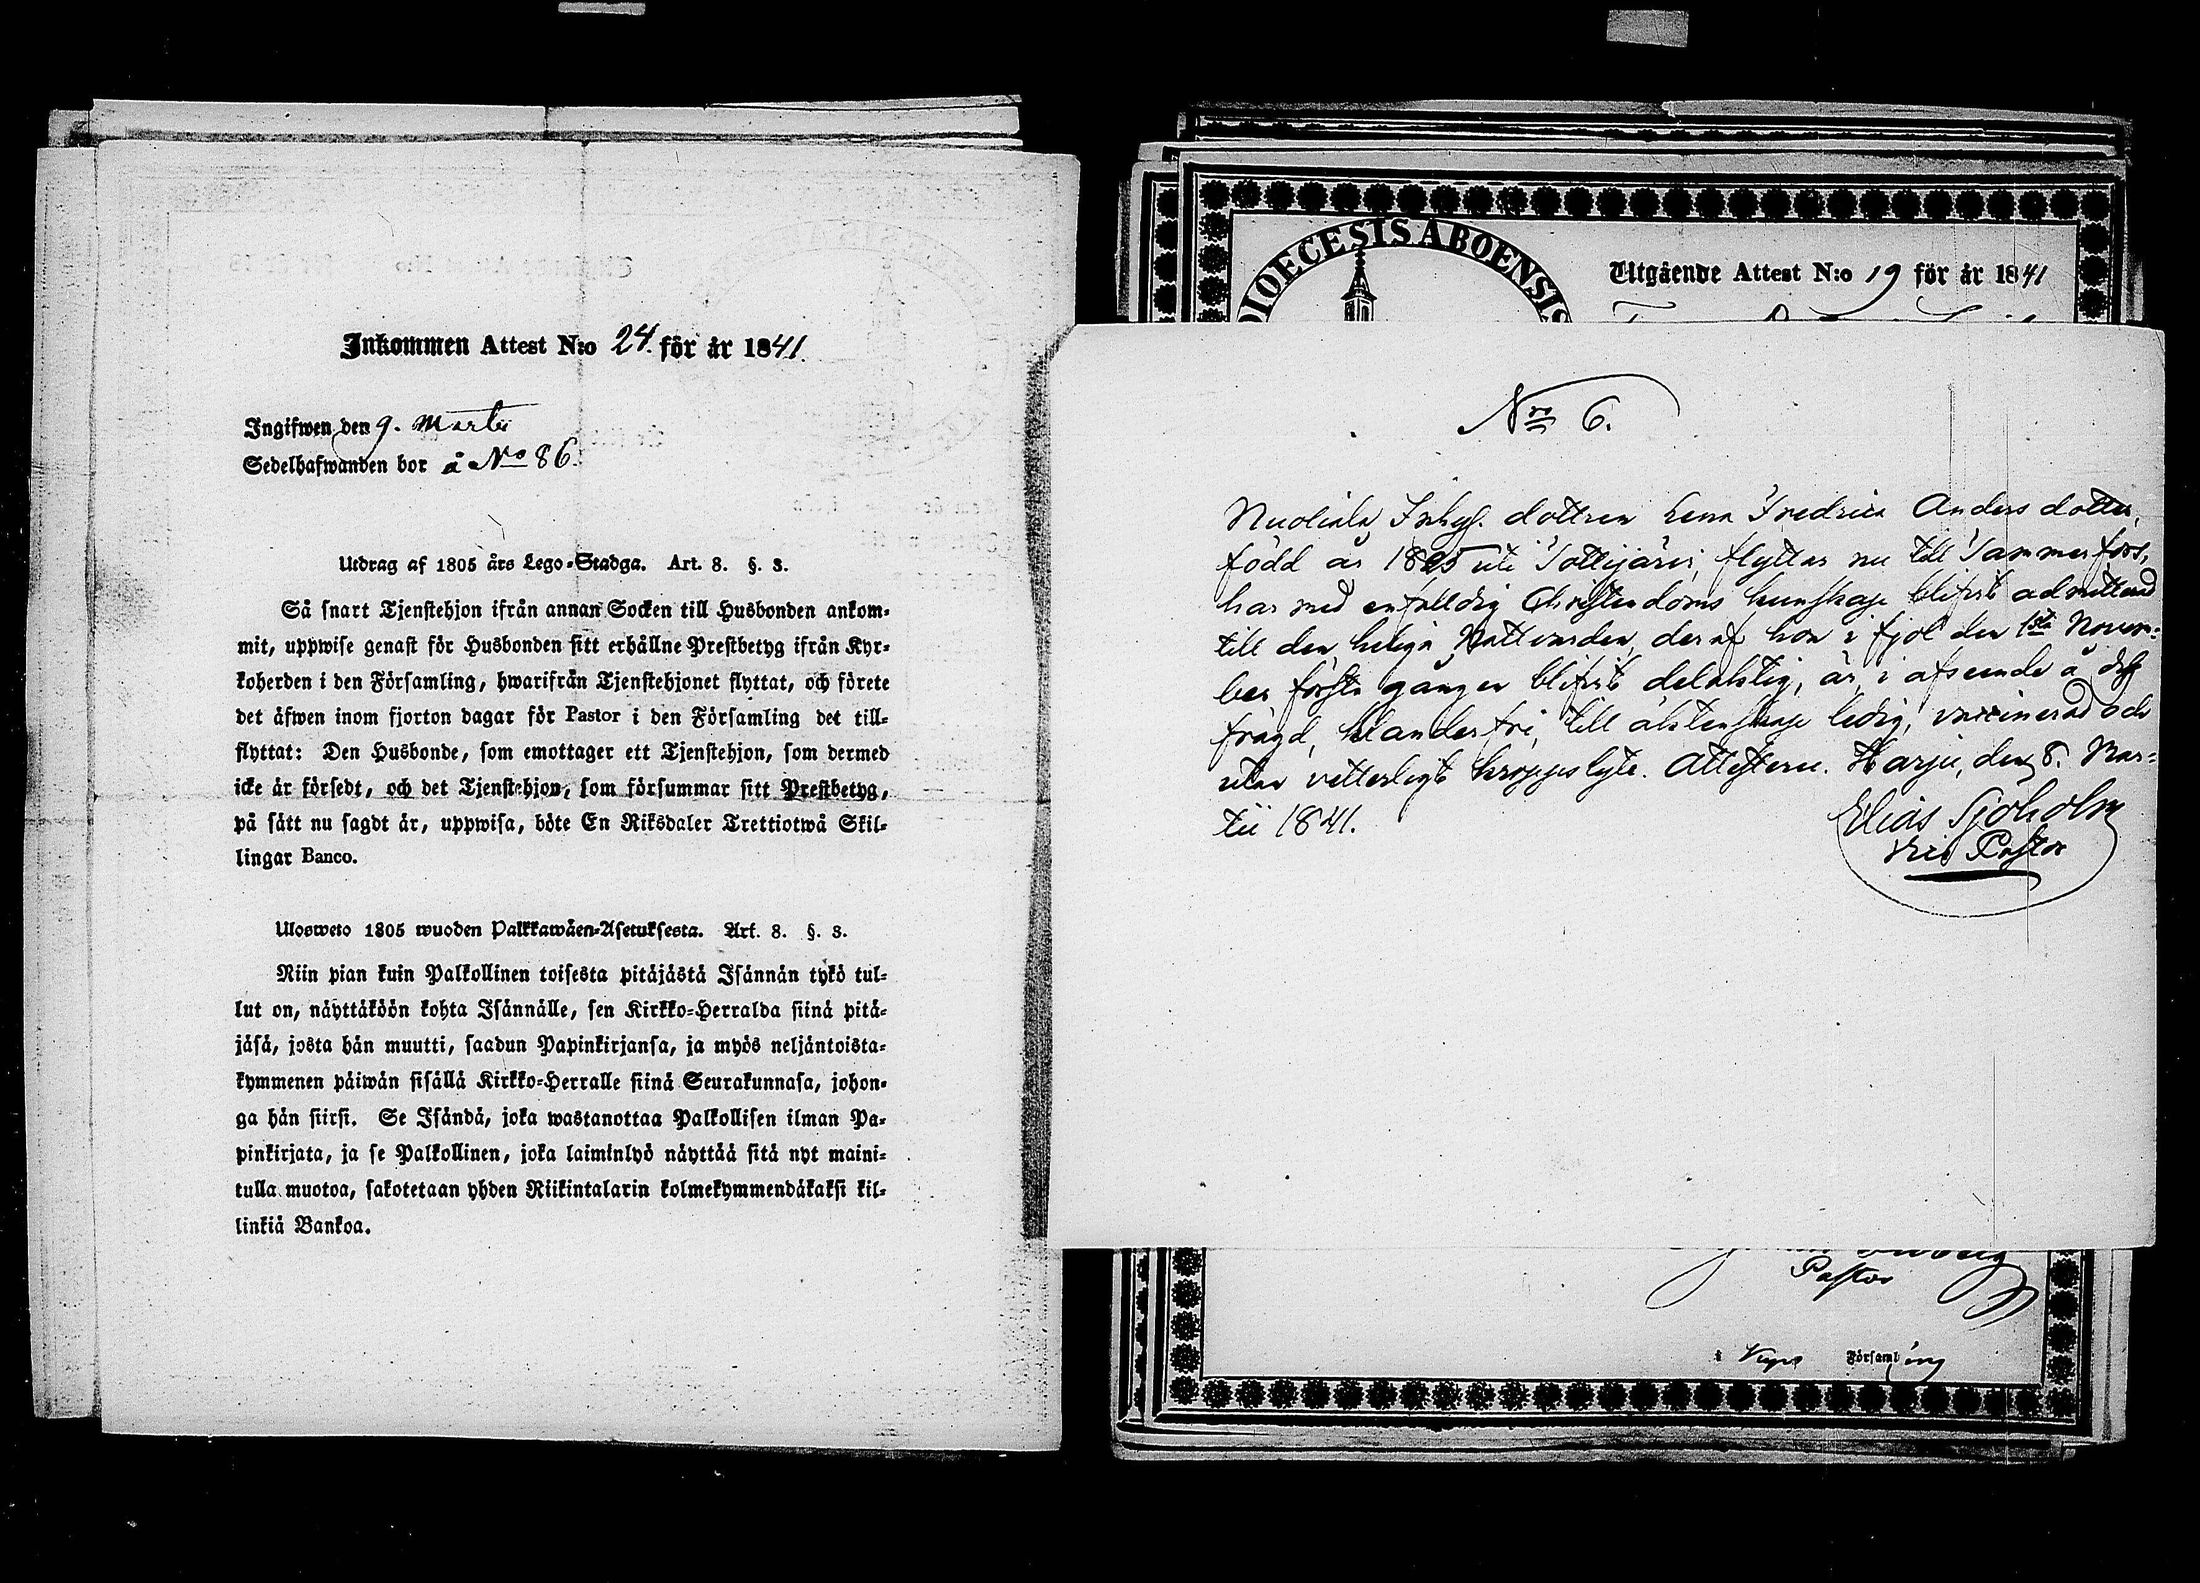 Inkommen Attest N:o 24. för år 1841.
Ingifwen den 9. Martii
Sedelhafwanden bor å No 86.
Utdrag af 1805 års Lego-Stadga. Art. 8. §. 3.
Så snart Tjenstehjon ifrån annan Socken till Husbonden ankom-
mit, uppwise genast för Husbonden sitt erhållne Prestbetyg ifrån Kyr-
koherden i den Församling, hwarifrån Tjenstehjonet flyttat, och förete
det äfwen inom fjorton dagar för Pastor i den Församling det till-
flyttat: Den Husbonde, som emottager ett Tjenstehjon, som dermed
icke är försedt, och det Tjenstehjon, som försummar sitt Prestbetyg,
på sätt nu sagdt är, uppwisa, böte En Riksdaler Trettiotwå Skil-
lingar Banco.
Ulosweto 1805 wuoden Palkkawäen-Asetuksesta. Art. 8. §. 3.
Niin pian kuin Palkollinen toisesta pitäjästä Isännän tykö tul-
lut on, näyttäköön kohta Isännälle, sen Kirkko-Herralda siinä pitä-
jäsä, josta hän muutti, saadun Papinkirjansa, ja myös neljäntoista-
kymmenen päiwän sisällä Kirkko-Herralle siinä Seurakunnasa, johon-
ga hän siirsi. Se Isändä, joka wastanottaa Palkollisen ilman Pa-
pinkirjata, ja se Palkollinen, joka laiminlyö näyttää sitä nyt maini-
tulla muotoa, sakotetaan yhden Riikintalarin kolmekymmendäkaksi kil-
linkiä Bankoa.
DIOECESIS ABOENSIS
Utgående Attest N:o 19 för år 1841
Nro 6.
Nuoliala Inhys. dottren Lena Fredrica Anders dotter,
född år 1825 uti Tottijärvi, flyttar nu till Tammerfors,
har med enfalldig Christendoms kunskap blifvit admitterad
till den heliga Nattvarden, deraf hon i fjol den 1sta Novem-
ber första gången blifvit delaktig, är, i afseende å dess
frägd, klanderfri, till äktenskap ledig, vaccinerad och
utan vetterligt kroppslyte. Attesteru. Harju, den 8. Mar-
tii 1841.
Elias Sjöholm
Vice Pastor
Pastor
i Församling